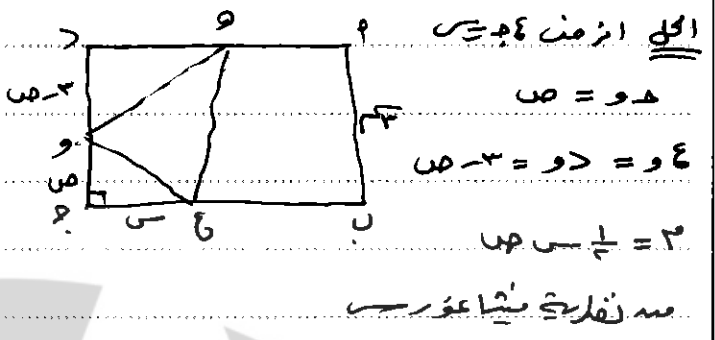 الحل افرض ع ج = س
ج و = ص
ع و = د و = ٣ - ص
م = ١/٢ س ص
من نظرية فيثاغورس
د
ه
أ
٣ - ص
و
ص
٣م
ج
س
ع
ب